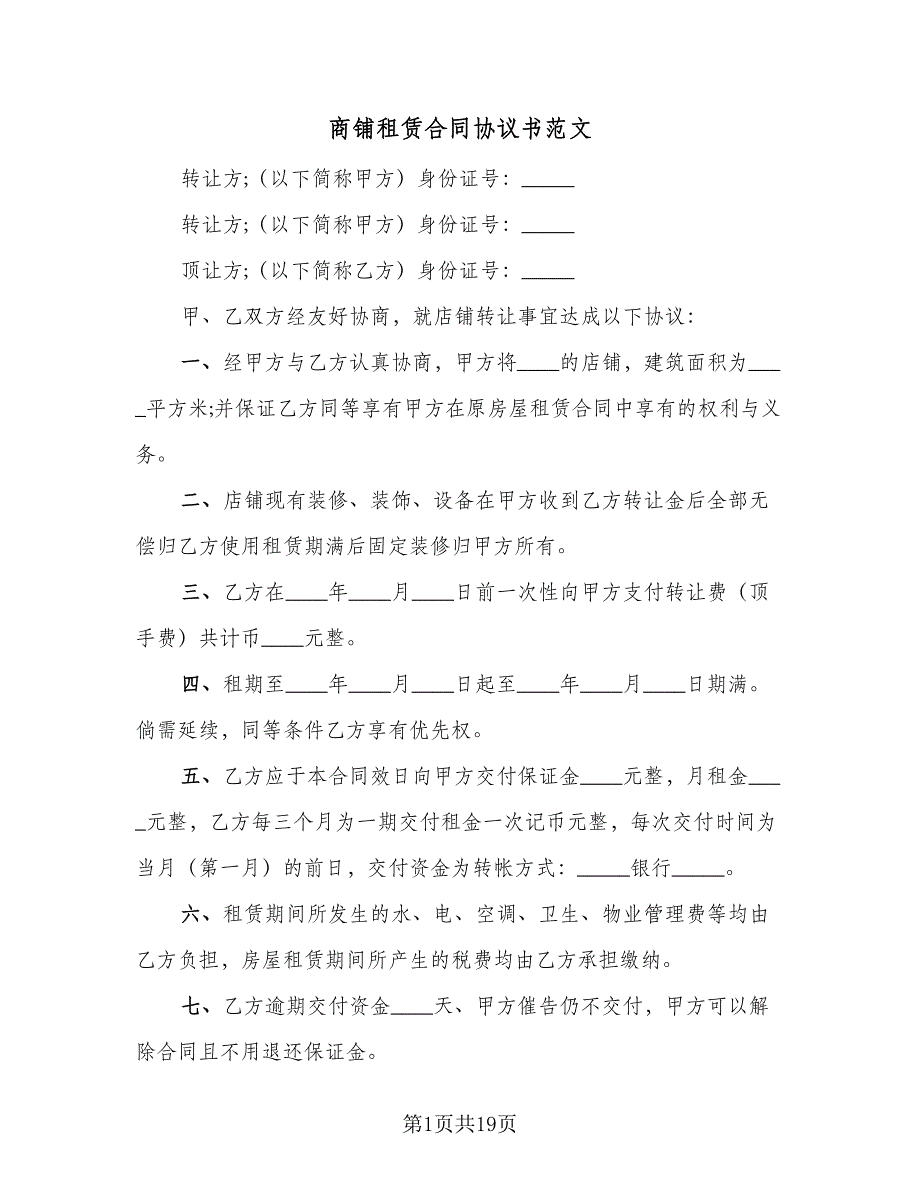 商铺租赁合同协议书范文
转让方;（以下简称甲方）身份证号：_____
转让方;（以下简称甲方）身份证号：_____
顶让方;（以下简称乙方）身份证号：_____
甲、乙双方经友好协商，就店铺转让事宜达成以下协议：
一、经甲方与乙方认真协商，甲方将____的店铺，建筑面积为___
_平方米;并保证乙方同等享有甲方在原房屋租赁合同中享有的权利与义
务。
二、店铺现有装修、装饰、设备在甲方收到乙方转让金后全部无
偿归乙方使用租赁期满后固定装修归甲方所有。
三、乙方在____年____月____日前一次性向甲方支付转让费（顶
手费）共计币____元整。
四、租期至____年____月____日起至____年____月____日期满。
倘需延续，同等条件乙方享有优先权。
五、乙方应于本合同效日向甲方交付保证金____元整，月租金___
_元整，乙方每三个月为一期交付租金一次记币元整，每次交付时间为
当月（第一月）的前日，交付资金为转帐方式：_____银行_____。
六、租赁期间所发生的水、电、空调、卫生、物业管理费等均由
乙方负担，房屋租赁期间所产生的税费均由乙方承担缴纳。
七、乙方逾期交付资金____天、甲方催告仍不交付，甲方可以解
除合同且不用退还保证金。
第1页共19页